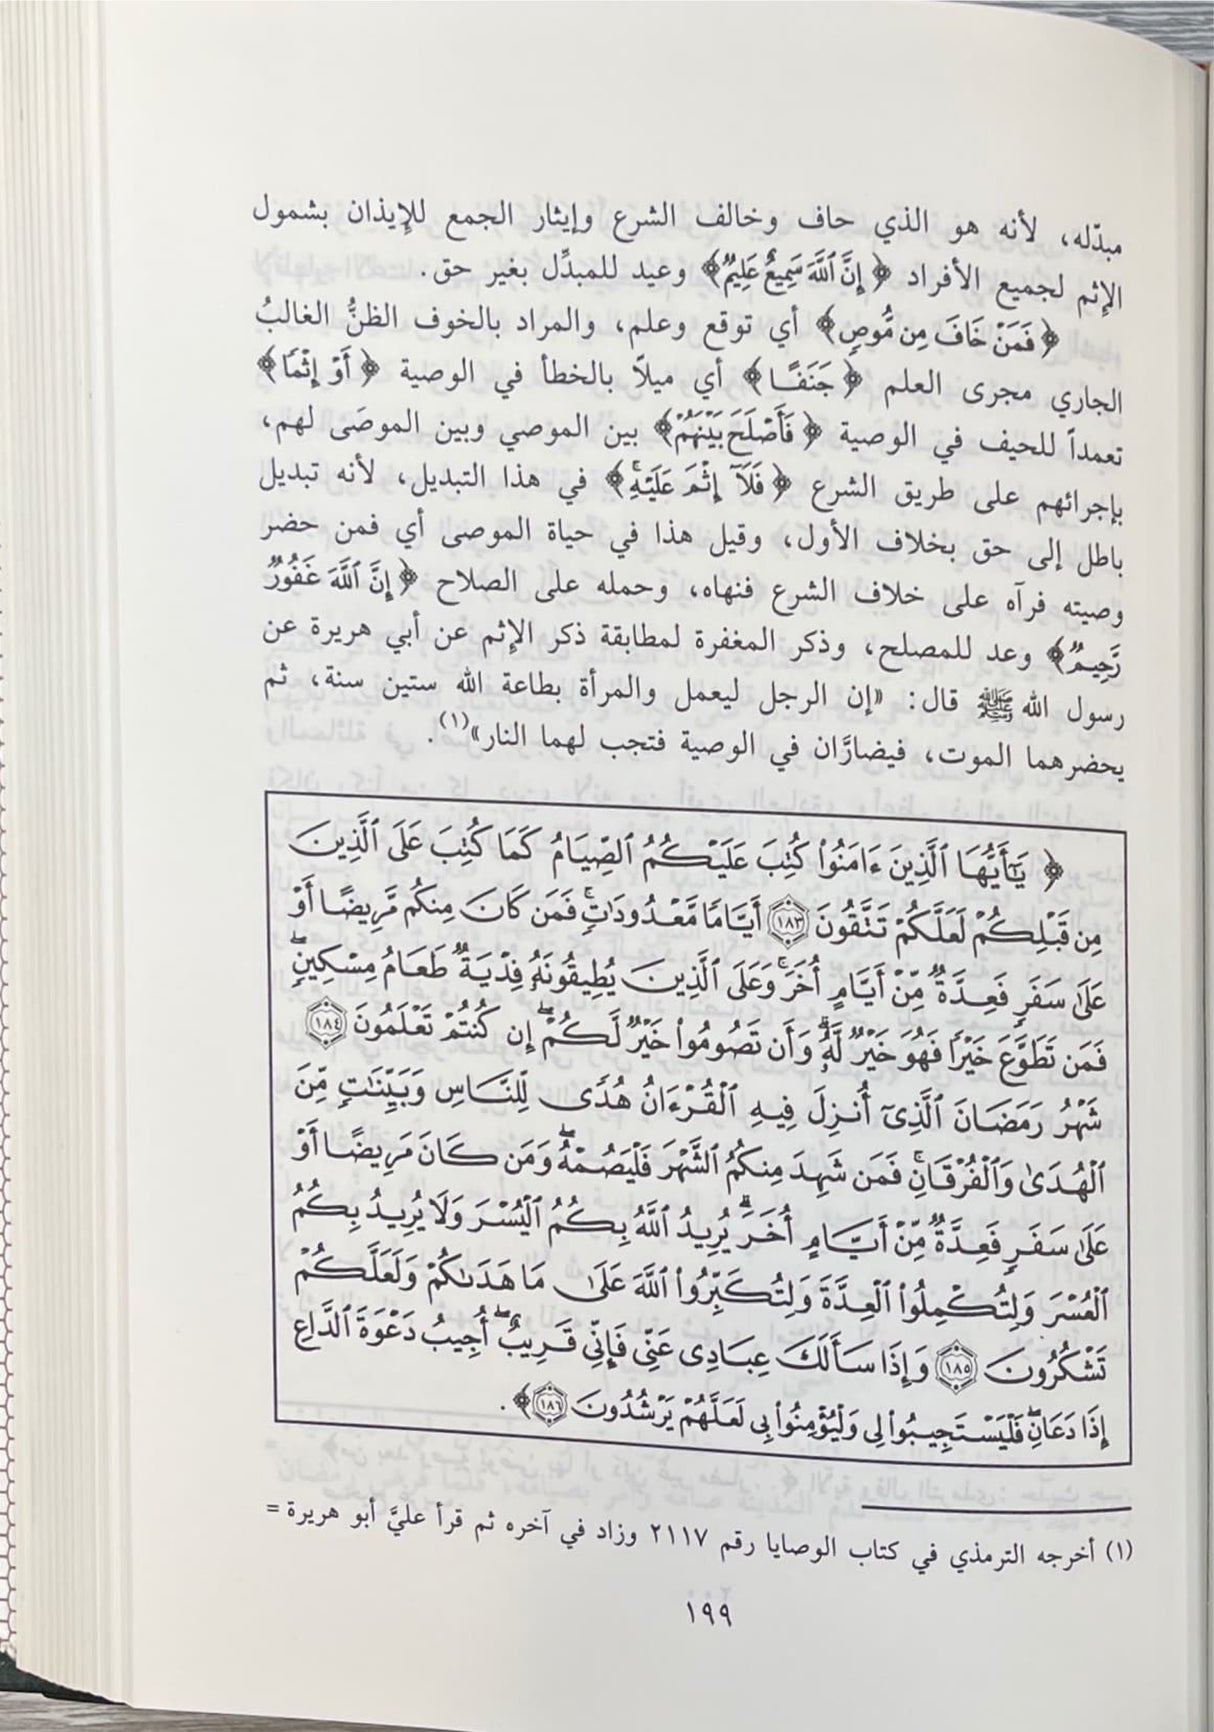 مبدّله، لأنه هو الذي حاف وخالف الشرع وإيثار الجمع للإيذان بشمول
الإثم لجميع الأفراد ﴿إِنَّ ٱللَّهَ سَمِيعٌ عَلِيمٌ﴾ وعيد للمبدِّل بغير حق.
﴿فَمَنْ خَافَ مِن مُّوصٍ﴾ أي توقع وعلم، والمراد بالخوف الظنُّ الغالبُ
الجاري مجرى العلم ﴿جَنَفًا﴾ أي ميلاً بالخطأ في الوصية ﴿أَوْ إِثْمًا﴾
تعمداً للحيف في الوصية ﴿فَأَصْلَحَ بَيْنَهُمْ﴾ بين الموصي وبين الموصَى لهم،
بإجرائهم على طريق الشرع ﴿فَلَآ إِثْمَ عَلَيْهِ﴾ في هذا التبديل، لأنه تبديل
باطل إلى حق بخلاف الأول، وقيل هذا في حياة الموصى أي فمن حضر
وصيته فرآه على خلاف الشرع فنهاه، وحمله على الصلاح ﴿إِنَّ ٱللَّهَ غَفُورٌ
رَّحِيمٌ﴾ وعد للمصلح، وذكر المغفرة لمطابقة ذكر الإثم عن أبي هريرة عن
رسول الله ﷺ قال: «إن الرجل ليعمل والمرأة بطاعة الله ستين سنة، ثم
يحضرهما الموت، فيضارَّان في الوصية فتجب لهما النار»(١).
﴿يَٰٓأَيُّهَا ٱلَّذِينَ ءَامَنُوا۟ كُتِبَ عَلَيْكُمُ ٱلصِّيَامُ كَمَا كُتِبَ عَلَى ٱلَّذِينَ
مِن قَبْلِكُمْ لَعَلَّكُمْ تَتَّقُونَ ١٨٣ أَيَّامًا مَّعْدُودَٰتٍ ۚ فَمَن كَانَ مِنكُم مَّرِيضًا أَوْ
عَلَىٰ سَفَرٍ فَعِدَّةٌ مِّنْ أَيَّامٍ أُخَرَ ۚ وَعَلَى ٱلَّذِينَ يُطِيقُونَهُۥ فِدْيَةٌ طَعَامُ مِسْكِينٍ ۖ
فَمَن تَطَوَّعَ خَيْرًا فَهُوَ خَيْرٌ لَّهُۥ ۚ وَأَن تَصُومُوا۟ خَيْرٌ لَّكُمْ ۖ إِن كُنتُمْ تَعْلَمُونَ ١٨٤
شَهْرُ رَمَضَانَ ٱلَّذِىٓ أُنزِلَ فِيهِ ٱلْقُرْءَانُ هُدًى لِّلنَّاسِ وَبَيِّنَٰتٍ مِّنَ
ٱلْهُدَىٰ وَٱلْفُرْقَانِ ۚ فَمَن شَهِدَ مِنكُمُ ٱلشَّهْرَ فَلْيَصُمْهُ ۖ وَمَن كَانَ مَرِيضًا أَوْ
عَلَىٰ سَفَرٍ فَعِدَّةٌ مِّنْ أَيَّامٍ أُخَرَ ۗ يُرِيدُ ٱللَّهُ بِكُمُ ٱلْيُسْرَ وَلَا يُرِيدُ بِكُمُ
ٱلْعُسْرَ وَلِتُكْمِلُوا۟ ٱلْعِدَّةَ وَلِتُكَبِّرُوا۟ ٱللَّهَ عَلَىٰ مَا هَدَىٰكُمْ وَلَعَلَّكُمْ
تَشْكُرُونَ ١٨٥ وَإِذَا سَأَلَكَ عِبَادِى عَنِّى فَإِنِّى قَرِيبٌ ۖ أُجِيبُ دَعْوَةَ ٱلدَّاعِ
إِذَا دَعَانِ ۖ فَلْيَسْتَجِيبُوا۟ لِى وَلْيُؤْمِنُوا۟ بِى لَعَلَّهُمْ يَرْشُدُونَ ١٨٦﴾.
(١) أخرجه الترمذي في كتاب الوصايا رقم ٢١١٧ وزاد في آخره ثم قرأ عليَّ أبو هريرة =
١٩٩